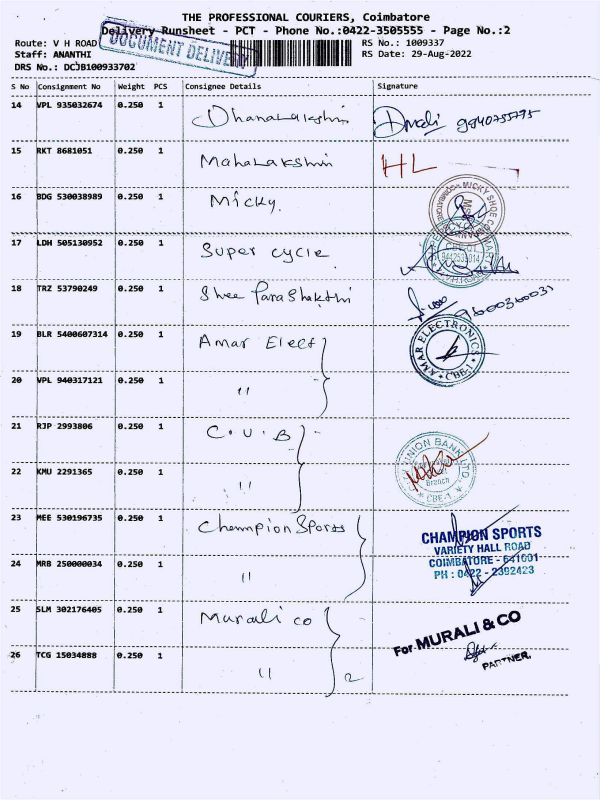 THE PROFESSIONAL COURIERS, Coimbatore
Delivery Runsheet - PCT - Phone No.:0422-3505555 - Page No.:2
DOCUMENT DELIVERY
Route: V H ROAD
RS No.: 1009337
Staff: ANANTHI
RS Date: 29-Aug-2022
DRS No.: DCJB100933702
S No Consignment No Weight PCS Consignee Details Signature
14 VPL 935032674 0.250 1 Dhanalakshmi 9840755795
15 RKT 8681051 0.250 1 Mahalakshmi HL
16 BDG 530038989 0.250 1 Micky.
MICKY SHOE COMPANY
17 LDH 505130952 0.250 1 Super cycle
18 TRZ 53790249 0.250 1 Shee Parashakthi 9600360031
19 BLR 5400607314 0.250 1 Amar Elect
AMAR ELECTRONICS
CBE-1
20 VPL 940317121 0.250 1 "
21 RJP 2993806 0.250 1 C.U.B
UNION BANK LTD.
Branch
CBE-1
22 KMU 2291365 0.250 1 "
23 MEE 530196735 0.250 1 Champion Sports
CHAMPION SPORTS
VARIETY HALL ROAD
COIMBATORE - 641001
PH : 0422 - 2392423
24 MRB 250000034 0.250 1 "
25 SLM 302176405 0.250 1 Murali co
For MURALI & CO
PARTNER.
26 TCG 15034888 0.250 1 " 2